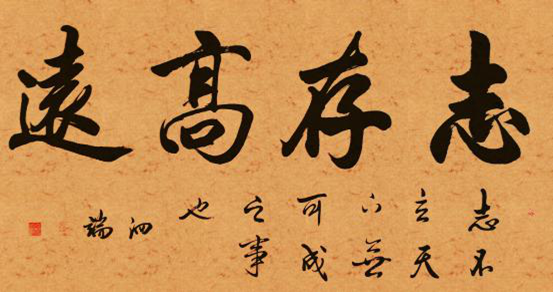 志存高遠
志不
立天
下無
可成
之事
也
泗
端